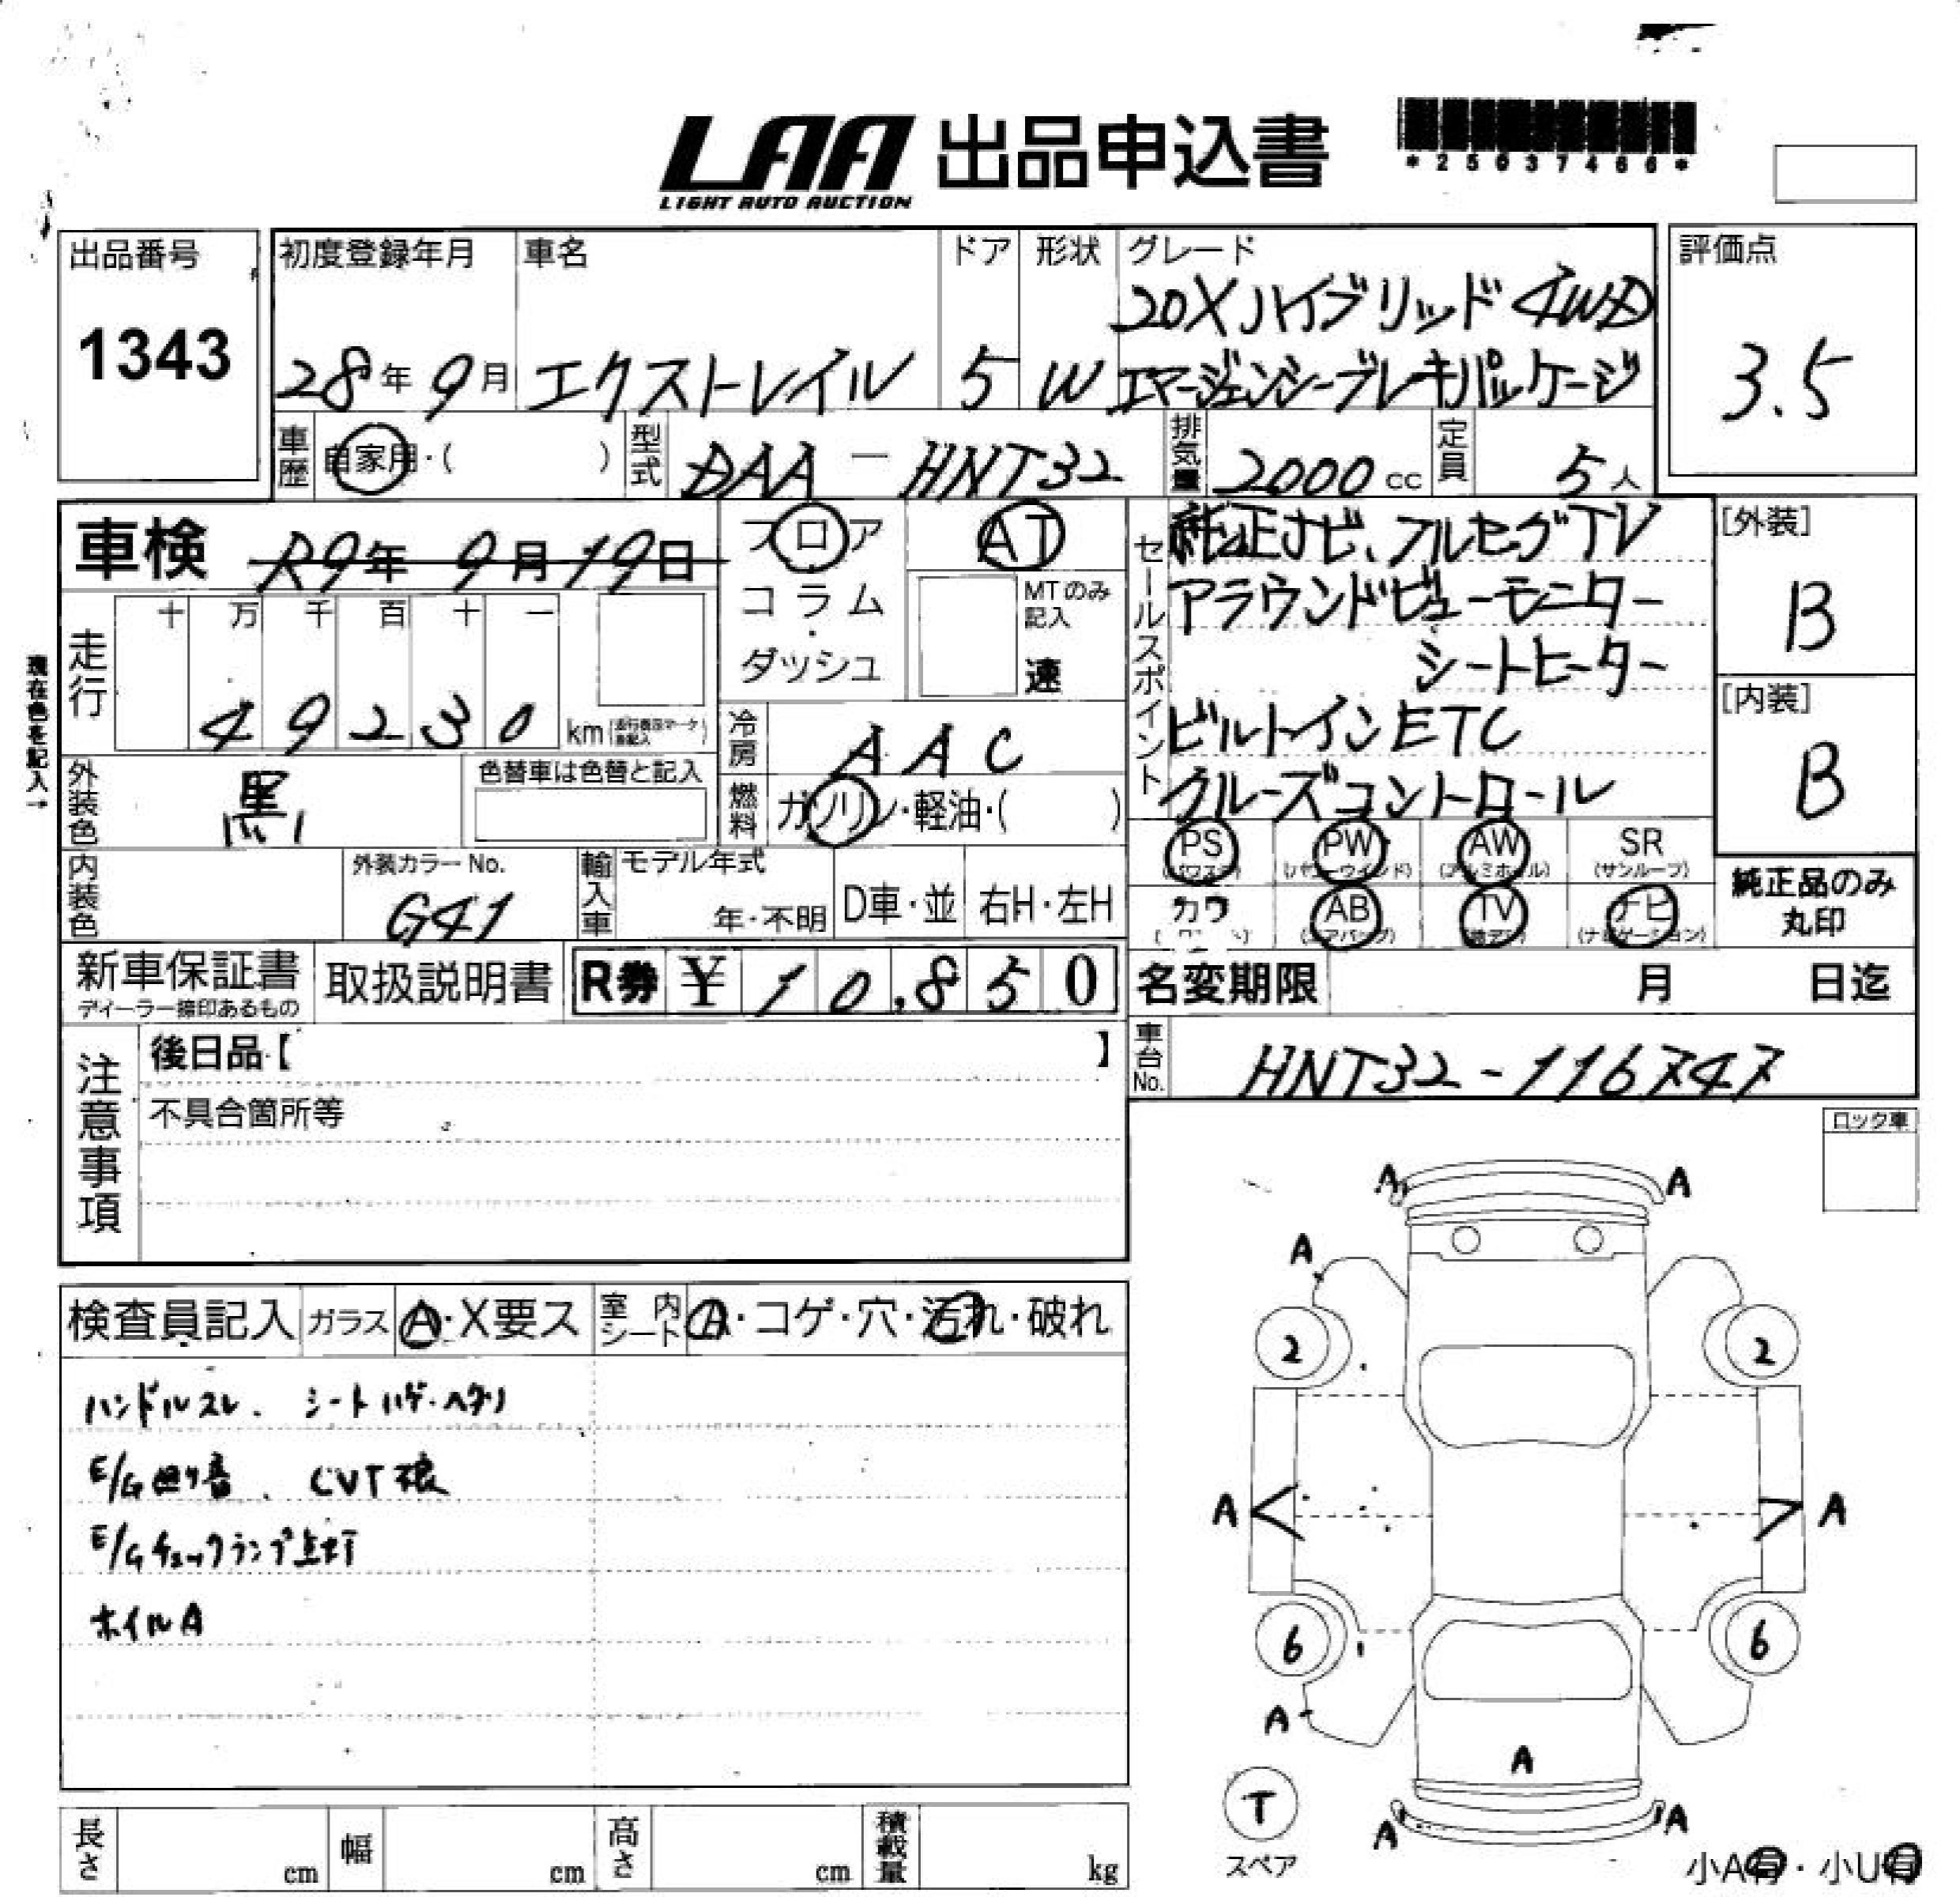 LAA 出品申込書
LIGHT AUTO AUCTION
*25037466*
出品番号
1343
初度登録年月
28年 9月
車名
エクストレイル
ドア
5
形状
W
グレード
20Xハイブリッド 4WD
エマージェンシーブレーキパッケージ
評価点
3.5
車歴
自家用・( )
型式
DAA-HNT32
排気量
2000 cc
定員
5人
車検
R9年 9月19日
フロア
コラム
・
ダッシュ
AT
MTのみ
記入
速
セールスポイント
純正ナビ、フルセグTV
アラウンドビューモニター
シートヒーター
ビルトインETC
クルーズコントロール
[外装]
B
[内装]
B
現在色を記入→
走行
十 万 千 百 十 一
4 9 2 3 0 km
冷房
AAC
外装色
黒
色替車は色替と記入
燃料
ガソリン・軽油・( )
PS
PW
AW
SR
(サンルーフ)
カワ
AB
(エアバッグ)
TV
ナビ
(ナビゲーション)
純正品のみ
丸印
内装色
外装カラーNo.
G41
輸入車
モデル年式
年・不明
D車・並
右H・左H
新車保証書
ディーラー捺印あるもの
取扱説明書
R券 ¥ 10,850
名変期限
月 日迄
車台No.
HNT32-116747
注意事項
後日品【 】
不具合箇所等
ロック車
検査員記入
ガラス
A・X要ス
室内シート
A・コゲ・穴・汚れ・破れ
ハンドルスレ、シートハゲ・ヘタリ
E/G廻り音、CVT痕
E/Gチェックランプ点灯
ホイルA
A A
A
2 2
A A
6 6
A
A
T
スペア
A A
小A有・小U有
長さ cm
幅 cm
高さ cm
積載量 kg